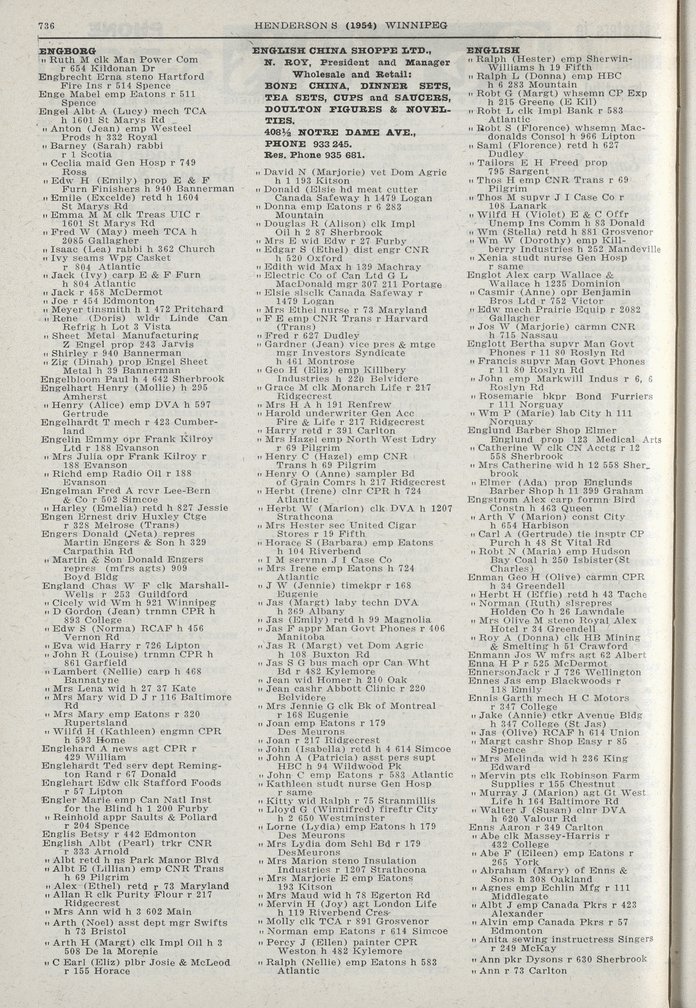 736
HENDERSON S (1954) WINNIPEG
ENGBORG
" Ruth M clk Man Power Com
r 654 Kildonan Dr
Engbrecht Erna steno Hartford
Fire Ins r 514 Spence
Enge Mabel emp Eatons r 511
Spence
Engel Albt A (Lucy) mech TCA
h 1601 St Marys Rd
" Anton (Jean) emp Westeel
Prods h 332 Royal
" Barney (Sarah) rabbi
r 1 Scotia
" Cecelia maid Gen Hosp r 749
Ross
" Edw H (Emily) prop E & F
Furn Finishers h 940 Bannerman
" Emile (Excelde) retd h 1604
St Marys Rd
" Emma M M clk Treas UIC r
1601 St Marys Rd
" Fred W (May) mech TCA h
2085 Gallagher
" Isaac (Lea) rabbi h 362 Church
" Ivy seams Wpg Casket
r 804 Atlantic
" Jack (Ivy) carp E & F Furn
h 804 Atlantic
" Jack r 458 McDermot
" Joe r 454 Edmonton
" Meyer tinsmith h 1 472 Pritchard
" Rene (Doris) wldr Linde Can
Refrig h Lot 3 Vista
" Sheet Metal Manufacturing
Z Engel prop 243 Jarvis
" Shirley r 940 Bannerman
" Zig (Dinah) prop Engel Sheet
Metal h 39 Bannerman
Engelbloom Paul h 4 642 Sherbrook
Engelhart Henry (Mollie) h 295
Amherst
" Henry (Alice) emp DVA h 597
Gertrude
Engelhardt T mech r 423 Cumber-
land
Engelin Emmy opr Frank Kilroy
Ltd r 188 Evanson
" Mrs Julia opr Frank Kilroy r
188 Evanson
" Richd emp Radio Oil r 188
Evanson
Engelman Fred A rcvr Lee-Bern
& Co r 502 Simcoe
" Harley (Emelia) retd h 827 Jessie
Engen Ernest driv Huxley Ctge
r 328 Melrose (Trans)
Engers Donald (Neta) repres
Martin Engers & Son h 329
Carpathia Rd
" Martin & Son Donald Engers
repres (mfrs agts) 909
Boyd Bldg
England Chas W F clk Marshall-
Wells r 253 Guildford
" Cicely wid Wm h 921 Winnipeg
" D Gordon (Jean) trnmn CPR h
893 College
" Edw S (Norma) RCAF h 456
Vernon Rd
" Eva wid Harry r 726 Lipton
" John R (Louise) trnmn CPR h
861 Garfield
" Lambert (Nellie) carp h 468
Bannatyne
" Mrs Lena wid h 27 37 Kate
" Mrs Mary wid D J r 116 Baltimore
Rd
" Mrs Mary emp Eatons r 320
Rupertsland
" Wilfd H (Kathleen) engmn CPR
h 593 Home
Englehard A news agt CPR r
429 William
Englehardt Ted serv dept Reming-
ton Rand r 67 Donald
Englehart Edw clk Stafford Foods
r 57 Lipton
Engler Marie emp Can Natl Inst
for the Blind h 1 200 Furby
" Reinhold appr Saults & Pollard
r 204 Spence
Englis Betsy r 442 Edmonton
English Albt (Pearl) trkr CNR
r 333 Arnold
" Albt retd h ns Park Manor Blvd
" Albt E (Lillian) emp CNR Trans
h 69 Pilgrim
" Alex (Ethel) retd r 73 Maryland
" Allan R clk Purity Flour r 217
Ridgecrest
" Mrs Ann wid h 3 602 Main
" Arth (Noel) asst dept mgr Swifts
h 73 Bristol
" Arth H (Margt) clk Impl Oil h 3
508 De la Morenie
" C Earl (Eliz) plbr Josie & McLeod
r 155 Horace
ENGLISH CHINA SHOPPE LTD.,
N. ROY, President and Manager
Wholesale and Retail:
BONE CHINA, DINNER SETS,
TEA SETS, CUPS and SAUCERS,
DOULTON FIGURES & NOVEL-
TIES.
408½ NOTRE DAME AVE.,
PHONE 933 245.
Res. Phone 935 681.
" David N (Marjorie) vet Dom Agric
h 1 193 Kitson
" Donald (Elsie hd meat cutter
Canada Safeway h 1479 Logan
" Donna emp Eatons r 6 283
Mountain
" Douglas R (Alison) clk Impl
Oil h 2 87 Sherbrook
" Mrs E wid Edw r 27 Furby
" Edgar S (Ethel) dist engr CNR
h 520 Oxford
" Edith wid Max h 139 Machray
" Electric Co of Can Ltd G L
MacDonald mgr 307 211 Portage
" Elsie slsclk Canada Safeway r
1479 Logan
" Mrs Ethel nurse r 73 Maryland
" F E emp CNR Trans r Harvard
(Trans)
" Fred r 627 Dudley
" Gardner (Jean) vice pres & mtge
mgr Investors Syndicate
h 461 Montrose
" Geo H (Eliz) emp Killbery
Industries h 220 Belvidere
" Grace M clk Monarch Life r 217
Ridgecrest
" Mrs H A h 191 Renfrew
" Harold underwriter Gen Acc
Fire & Life r 217 Ridgecrest
" Harry retd r 391 Carlton
" Mrs Hazel emp North West Ldry
r 69 Pilgrim
" Henry C (Hazel) emp CNR
Trans h 69 Pilgrim
" Henry O (Anne) sampler Bd
of Grain Comrs h 217 Ridgecrest
" Herbt (Irene) clnr CPR h 724
Atlantic
" Herbt W (Marion) clk DVA h 1207
Strathcona
" Mrs Hester sec United Cigar
Stores r 19 Fifth
" Horace S (Barbara) emp Eatons
h 104 Riverbend
" I M servmn J I Case Co
" Mrs Irene emp Eatons h 724
Atlantic
" J W (Jennie) timekpr r 168
Eugenie
" Jas (Margt) laby techn DVA
h 369 Albany
" Jas (Emily) retd h 99 Magnolia
" Jas F appr Man Govt Phones r 406
Manitoba
" Jas R (Margt) vet Dom Agric
h 108 Buxton Rd
" Jas S G bus mach opr Can Wht
Bd r 482 Kylemore
" Jean wid Homer h 210 Oak
" Jean cashr Abbott Clinic r 220
Belvidere
" Mrs Jennie G clk Bk of Montreal
r 168 Eugenie
" Joan emp Eatons r 179
Des Meurons
" Joan r 217 Ridgecrest
" John (Isabella) retd h 4 614 Simcoe
" John A (Patricia) asst pers supt
HBC h 94 Wildwood Pk
" John C emp Eatons r 583 Atlantic
" Kathleen studt nurse Gen Hosp
r same
" Kitty wid Ralph r 75 Stranmillis
" Lloyd G (Winnifred) fireftr City
h 2 650 Westminster
" Lorne (Lydia) emp Eatons h 179
Des Meurons
" Mrs Lydia dom Schl Bd r 179
DesMeurons
" Mrs Marion steno Insulation
Industries r 1207 Strathcona
" Mrs Marjorie E emp Eatons
193 Kitson
" Mrs Maud wid h 78 Egerton Rd
" Mervin H (Joy) agt London Life
h 119 Riverbend Cres
" Molly clk TCA r 891 Grosvenor
" Norman emp Eatons r 614 Simcoe
" Percy J (Ellen) painter CPR
Weston h 482 Kylemore
" Ralph (Nellie) emp Eatons h 583
Atlantic
ENGLISH
" Ralph (Hester) emp Sherwin-
Williams h 19 Fifth
" Ralph L (Donna) emp HBC
h 6 283 Mountain
" Robt G (Margt) whsemn CP Exp
h 215 Greene (E Kil)
" Robt L clk Impl Bank r 583
Atlantic
" Robt S (Florence) whsemn Mac-
donalds Consol h 966 Lipton
" Saml (Florence) retd h 627
Dudley
" Tailors E H Freed prop
795 Sargent
" Thos H emp CNR Trans r 69
Pilgrim
" Thos M supvr J I Case Co r
108 Lanark
" Wilfd H (Violet) E & C Offr
Unemp Ins Comm h 83 Donald
" Wm (Stella) retd h 881 Grosvenor
" Wm W (Dorothy) emp Kill-
berry Industries h 252 Mandeville
" Xenia studt nurse Gen Hosp
r same
Englot Alex carp Wallace &
Wallace h 1235 Dominion
" Casmir (Anne) opr Benjamin
Bros Ltd r 752 Victor
" Edw mech Prairie Equip r 2082
Gallagher
" Jos W (Marjorie) carmn CNR
h 715 Nassau
Englott Bertha supvr Man Govt
Phones r 11 80 Roslyn Rd
" Francis supvr Man Govt Phones
r 11 80 Roslyn Rd
" John emp Markwill Indus r 6, 6
Roslyn Rd
" Rosemarie bkpr Bond Furriers
r 111 Norquay
" Wm P (Marie) lab City h 111
Norquay
Englund Barber Shop Elmer
Englund prop 123 Medical Arts
" Catherine W clk CN Acctg r 12
558 Sherbrook
" Mrs Catherine wid h 12 558 Sher_
brook
" Elmer (Ada) prop Englunds
Barber Shop h 11 399 Graham
Engstrom Alex carp formn Bird
Constn h 463 Queen
" Arth V (Marion) const City
h 654 Harbison
" Carl A (Gertrude) tie insptr CP
Purch h 48 St Vital Rd
" Robt N (Maria) emp Hudson
Bay Coal h 250 Isbister(St
Charles)
Enman Geo H (Olive) carmn CPR
h 34 Greendell
" Herbt H (Effie) retd h 43 Tache
" Norman (Ruth) slsrepres
Holden Co h 26 Lawndale
" Mrs Olive M steno Royal Alex
Hotel r 34 Greendell
" Roy A (Donna) clk HB Mining
& Smelting h 51 Crawford
Enmann Jos W mfrs agt 62 Albert
Enna H P r 525 McDermot
EnnersonJack r J 726 Wellington
Ennes Jas emp Blackwoods r
118 Emily
Ennis Garth mech H C Motors
r 347 College
" Jake (Annie) ctkr Avenue Bldg
h 347 College (St Jas)
" Jas (Olive) RCAF h 614 Union
" Margt cashr Shop Easy r 85
Spence
" Mrs Melinda wid h 236 King
Edward
" Mervin pts clk Robinson Farm
Supplies r 155 Chestnut
" Murray J (Marion) agt Gt West
Life h 164 Baltimore Rd
" Walter J (Susan) clnr DVA
h 620 Valour Rd
Enns Aaron r 349 Carlton
" Abe clk Massey-Harris r
432 College
" Abe F (Eileen) emp Eatons r
265 York
" Abraham (Mary) of Enns &
Sons h 308 Oakland
" Agnes emp Echlin Mfg r 111
Middlegate
" Albt J emp Canada Pkrs r 423
Alexander
" Alvin emp Canada Pkrs r 57
Edmonton
" Anita sewing instructress Singers
r 249 McKay
" Ann pkr Dysons r 630 Sherbrook
" Ann r 73 Carlton